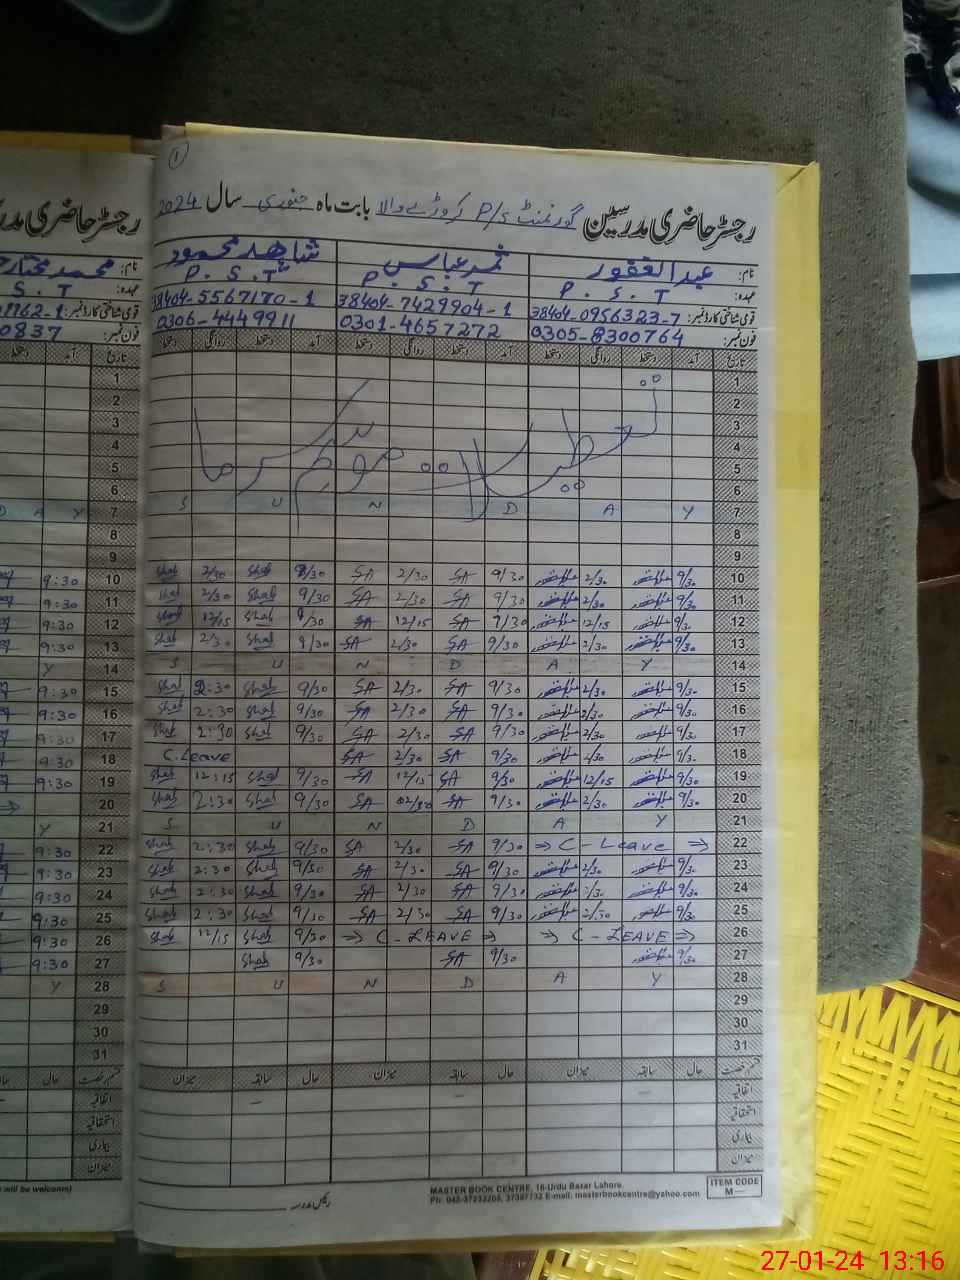 1
رجسٹر حاضری مدرسین گورنمنٹ P/S کروڑے والا بابت ماہ جنوری سال 2024
نام: عبدالغفور ثمر عباس شاھد محمود
عہدہ: P.S.T P.S.T P.S.T S.T
قومی شناختی کارڈ نمبر: 38404-0956323-7 38404-7429904-1 38404-5567170-1 1162-1
فون نمبر: 0305-8300764 0301-4657272 0306-4449911 0837
تاریخ آمد دستخط روانگی دستخط آمد دستخط روانگی دستخط آمد دستخط روانگی دستخط
1
2
3
4
5
6
تعطیلات موسم سرما
7 S U N D A Y
8
9
10 Shah 2/30 Shah 9/30 SA 2/30 SA 9/30 2/30 9/30 9:30
11 Shah 2/30 Shah 9/30 SA 2/30 SA 9/30 2/30 9/30 9:30
12 Shah 12/15 Shah 9/30 SA 12/15 SA 9/30 12/15 9/30 9:30
13 Shah 2/30 Shah 9/30 SA 2/30 SA 9/30 2/30 9/30 9:30
14 S U N D A Y
15 Shah 2:30 Shah 9/30 SA 2/30 SA 9/30 2/30 9/30 9:30
16 Shah 2:30 Shah 9/30 SA 2/30 SA 9/30 2/30 9/30 9:30
17 Shah 2:30 Shah 9/30 SA 2/30 SA 9/30 2/30 9/30 9:30
18 C.Leave SA 2/30 SA 9/30 2/30 9/30 9:30
19 Shah 12:15 Shah 9/30 SA 12/15 SA 9/30 12/15 9/30 9:30
20 Shah 2:30 Shah 9/30 SA 02/30 SA 9/30 2/30 9/30
21 S U N D A Y
22 Shah 2:30 Shah 9/30 SA 2/30 SA 9/30 ⇒ C-Leave ⇒ 9:30
23 Shah 2:30 Shah 9/30 SA 2/30 SA 9/30 2/30 9/30 9:30
24 Shah 2:30 Shah 9/30 SA 2/30 SA 9/30 2/30 9/30 9:30
25 Shah 2:30 Shah 9/30 SA 2/30 SA 9/30 2/30 9/30 9:30
26 Shah 12/15 Shah 9/30 ⇒ C-LEAVE ⇒ ⇒ C-LEAVE ⇒ 9:30
27 Shah 9/30 SA 9/30 9/30 9:30
28 S U N D A Y
29
30
31
قسم رخصت حال سابقہ میزان حال سابقہ میزان حال سابقہ میزان
اتفاقیہ
استحقاقیہ
بیماری
میزان
ITEM CODE
M—
MASTER BOOK CENTRE, 16-Urdu Bazar Lahore.
Ph: 042-37232205, 37387732 E-mail: masterbookcentre@yahoo.com
رئیس مدرسہ
will be welcomed)
27-01-24 13:16